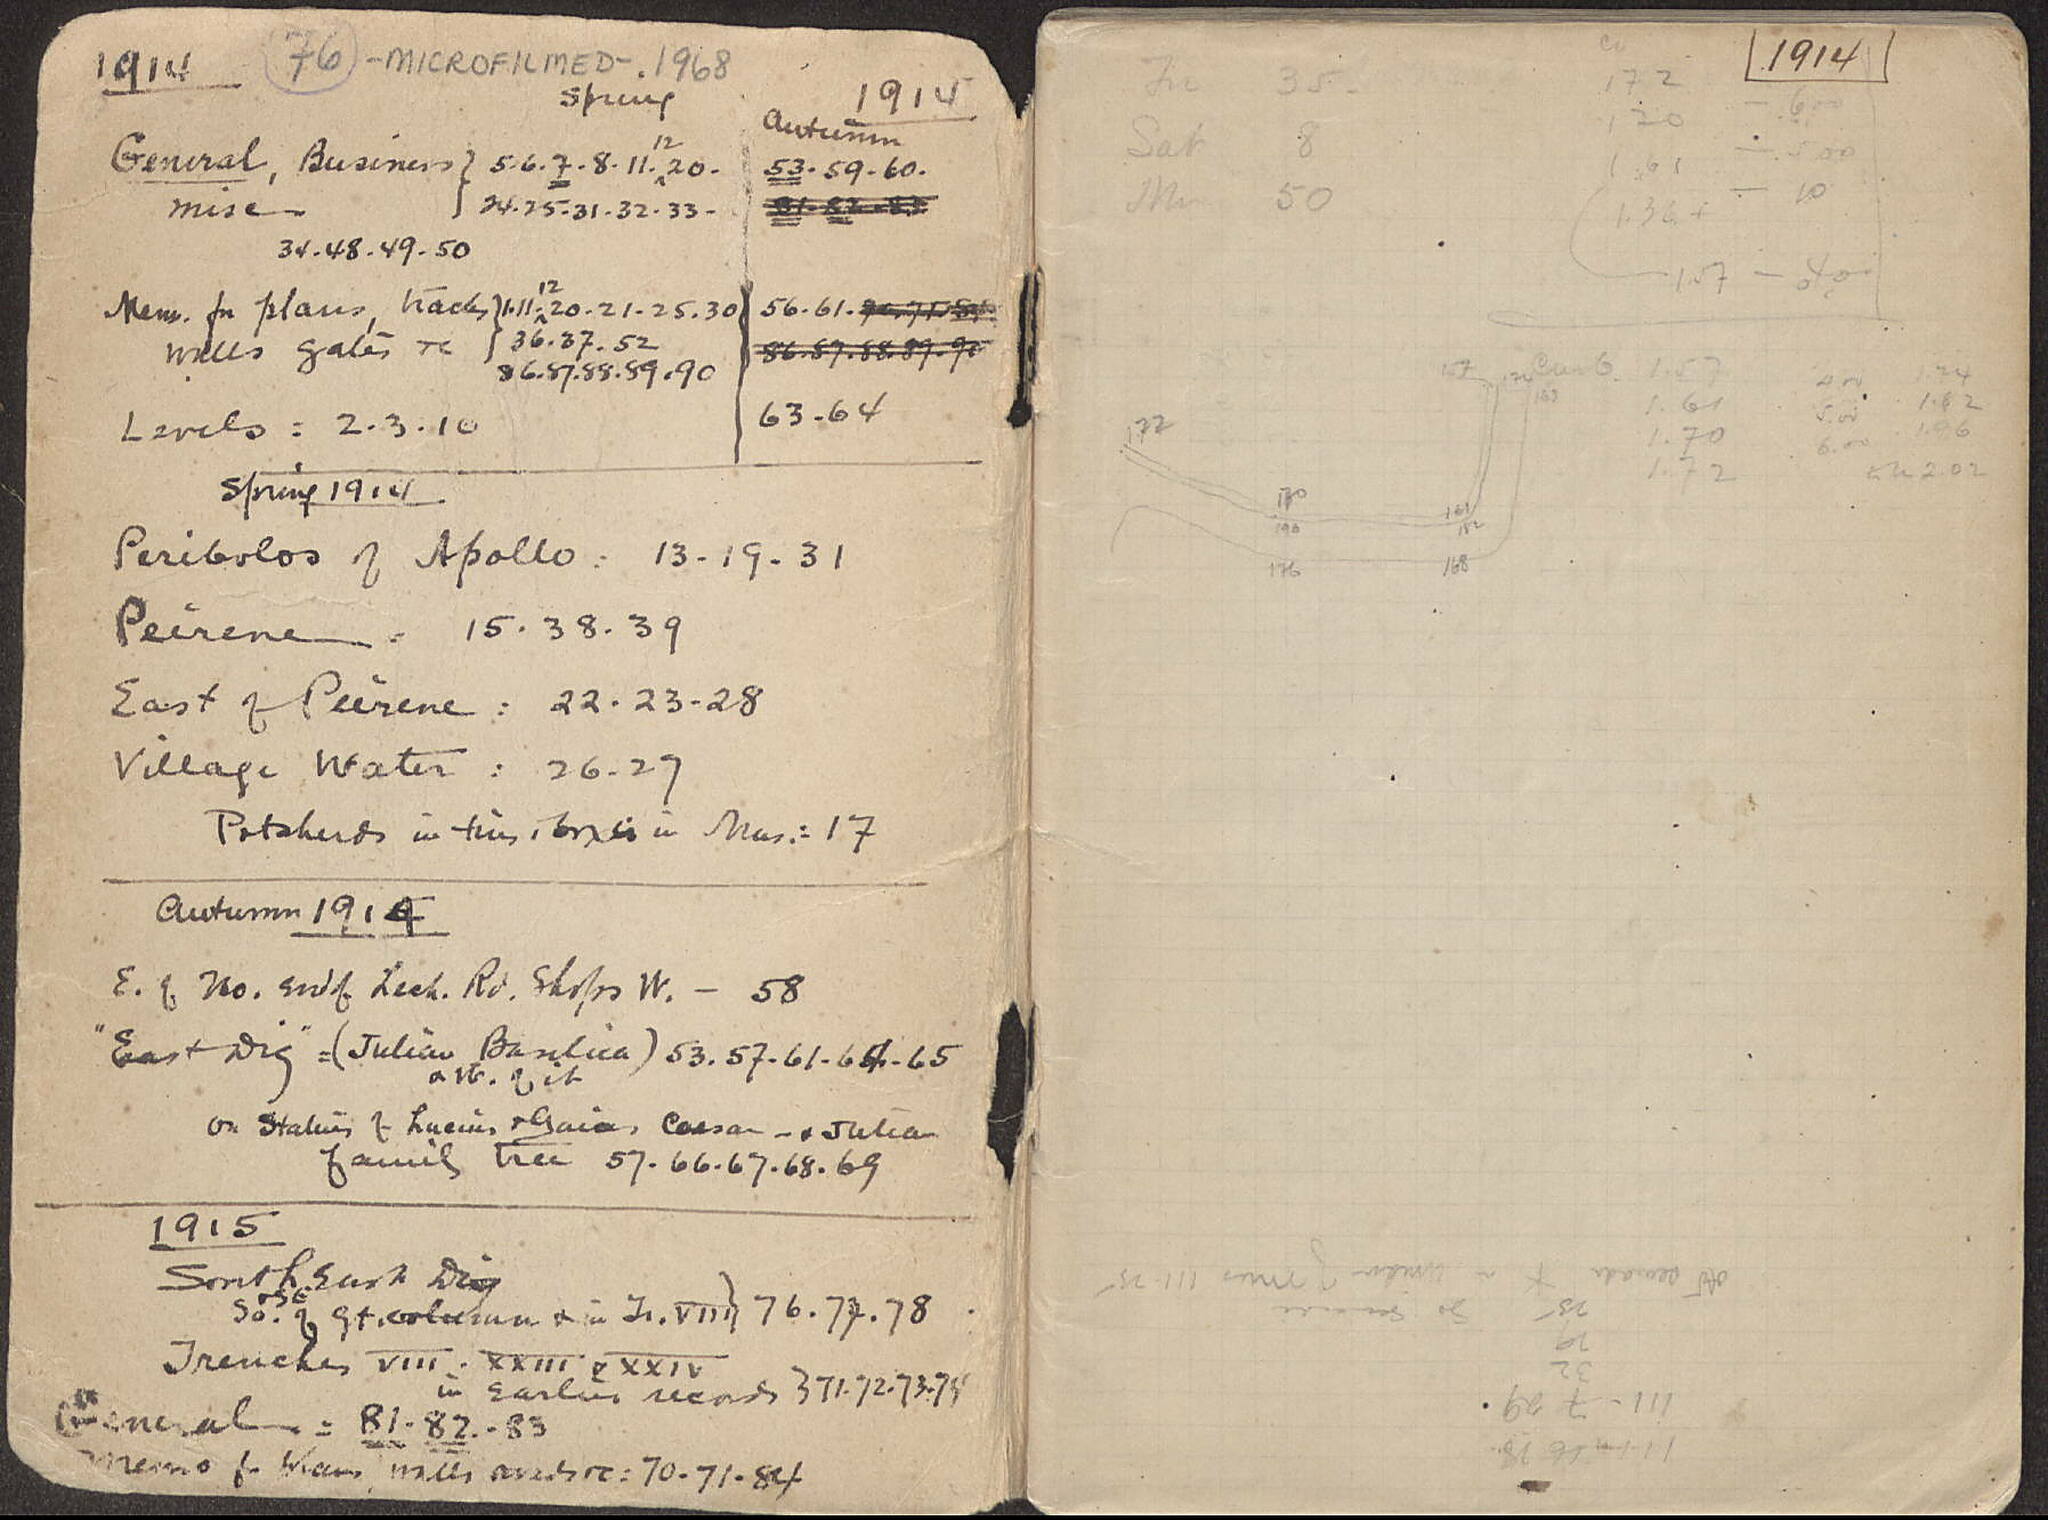 1914 76 -MICROFILMED-. 1968
Spring 1914
Autumn
General, Business } 5.6.7.8.11.12 20. 53.59.60.
misc } 24.25.31.32.33. 81.82.83
34.48.49.50
Mem. for plans, tracks } 1.11.12 20.21.25.30 56.61.
walls gates &c } 36.37.52 86.87.88.89.90
86.87.88.89.90
Levels = 2.3.10 63-64
Spring 1914
Peribolos of Apollo : 13-19-31
Peirene = 15.38.39
East of Peirene : 22.23-28
Village Water : 26-27
Potsherds in tins, boxes in Mus.: 17
Autumn 1914
E. of No. end of Lech. Rd. Shops W. - 58
"East Dig" = (Julian Basilica) 53.57-61-64-65
& W. of it
on Statues of Lucius & Gaius Caesar - & Julian
family tree 57.66.67.68.69
1915
South East Dig
So. & SE of gt. column & in Tr. VIII } 76.77.78
Trenches VIII. XXIII & XXIV
in earlier records } 71.72.73.74
General = 81.82.-83
Memo for plans, walls &c : 70-71-84
1914
Fri 35-
Sat 8
50
172
120
1.61
1.36+
1.57
Curb 1.57 4.00 1.74
1.61 5.00 1.82
1.70 6.00 1.96
1.72 2.02
157
172
170
190
176
161
182
168
25
19
32
111-7 29